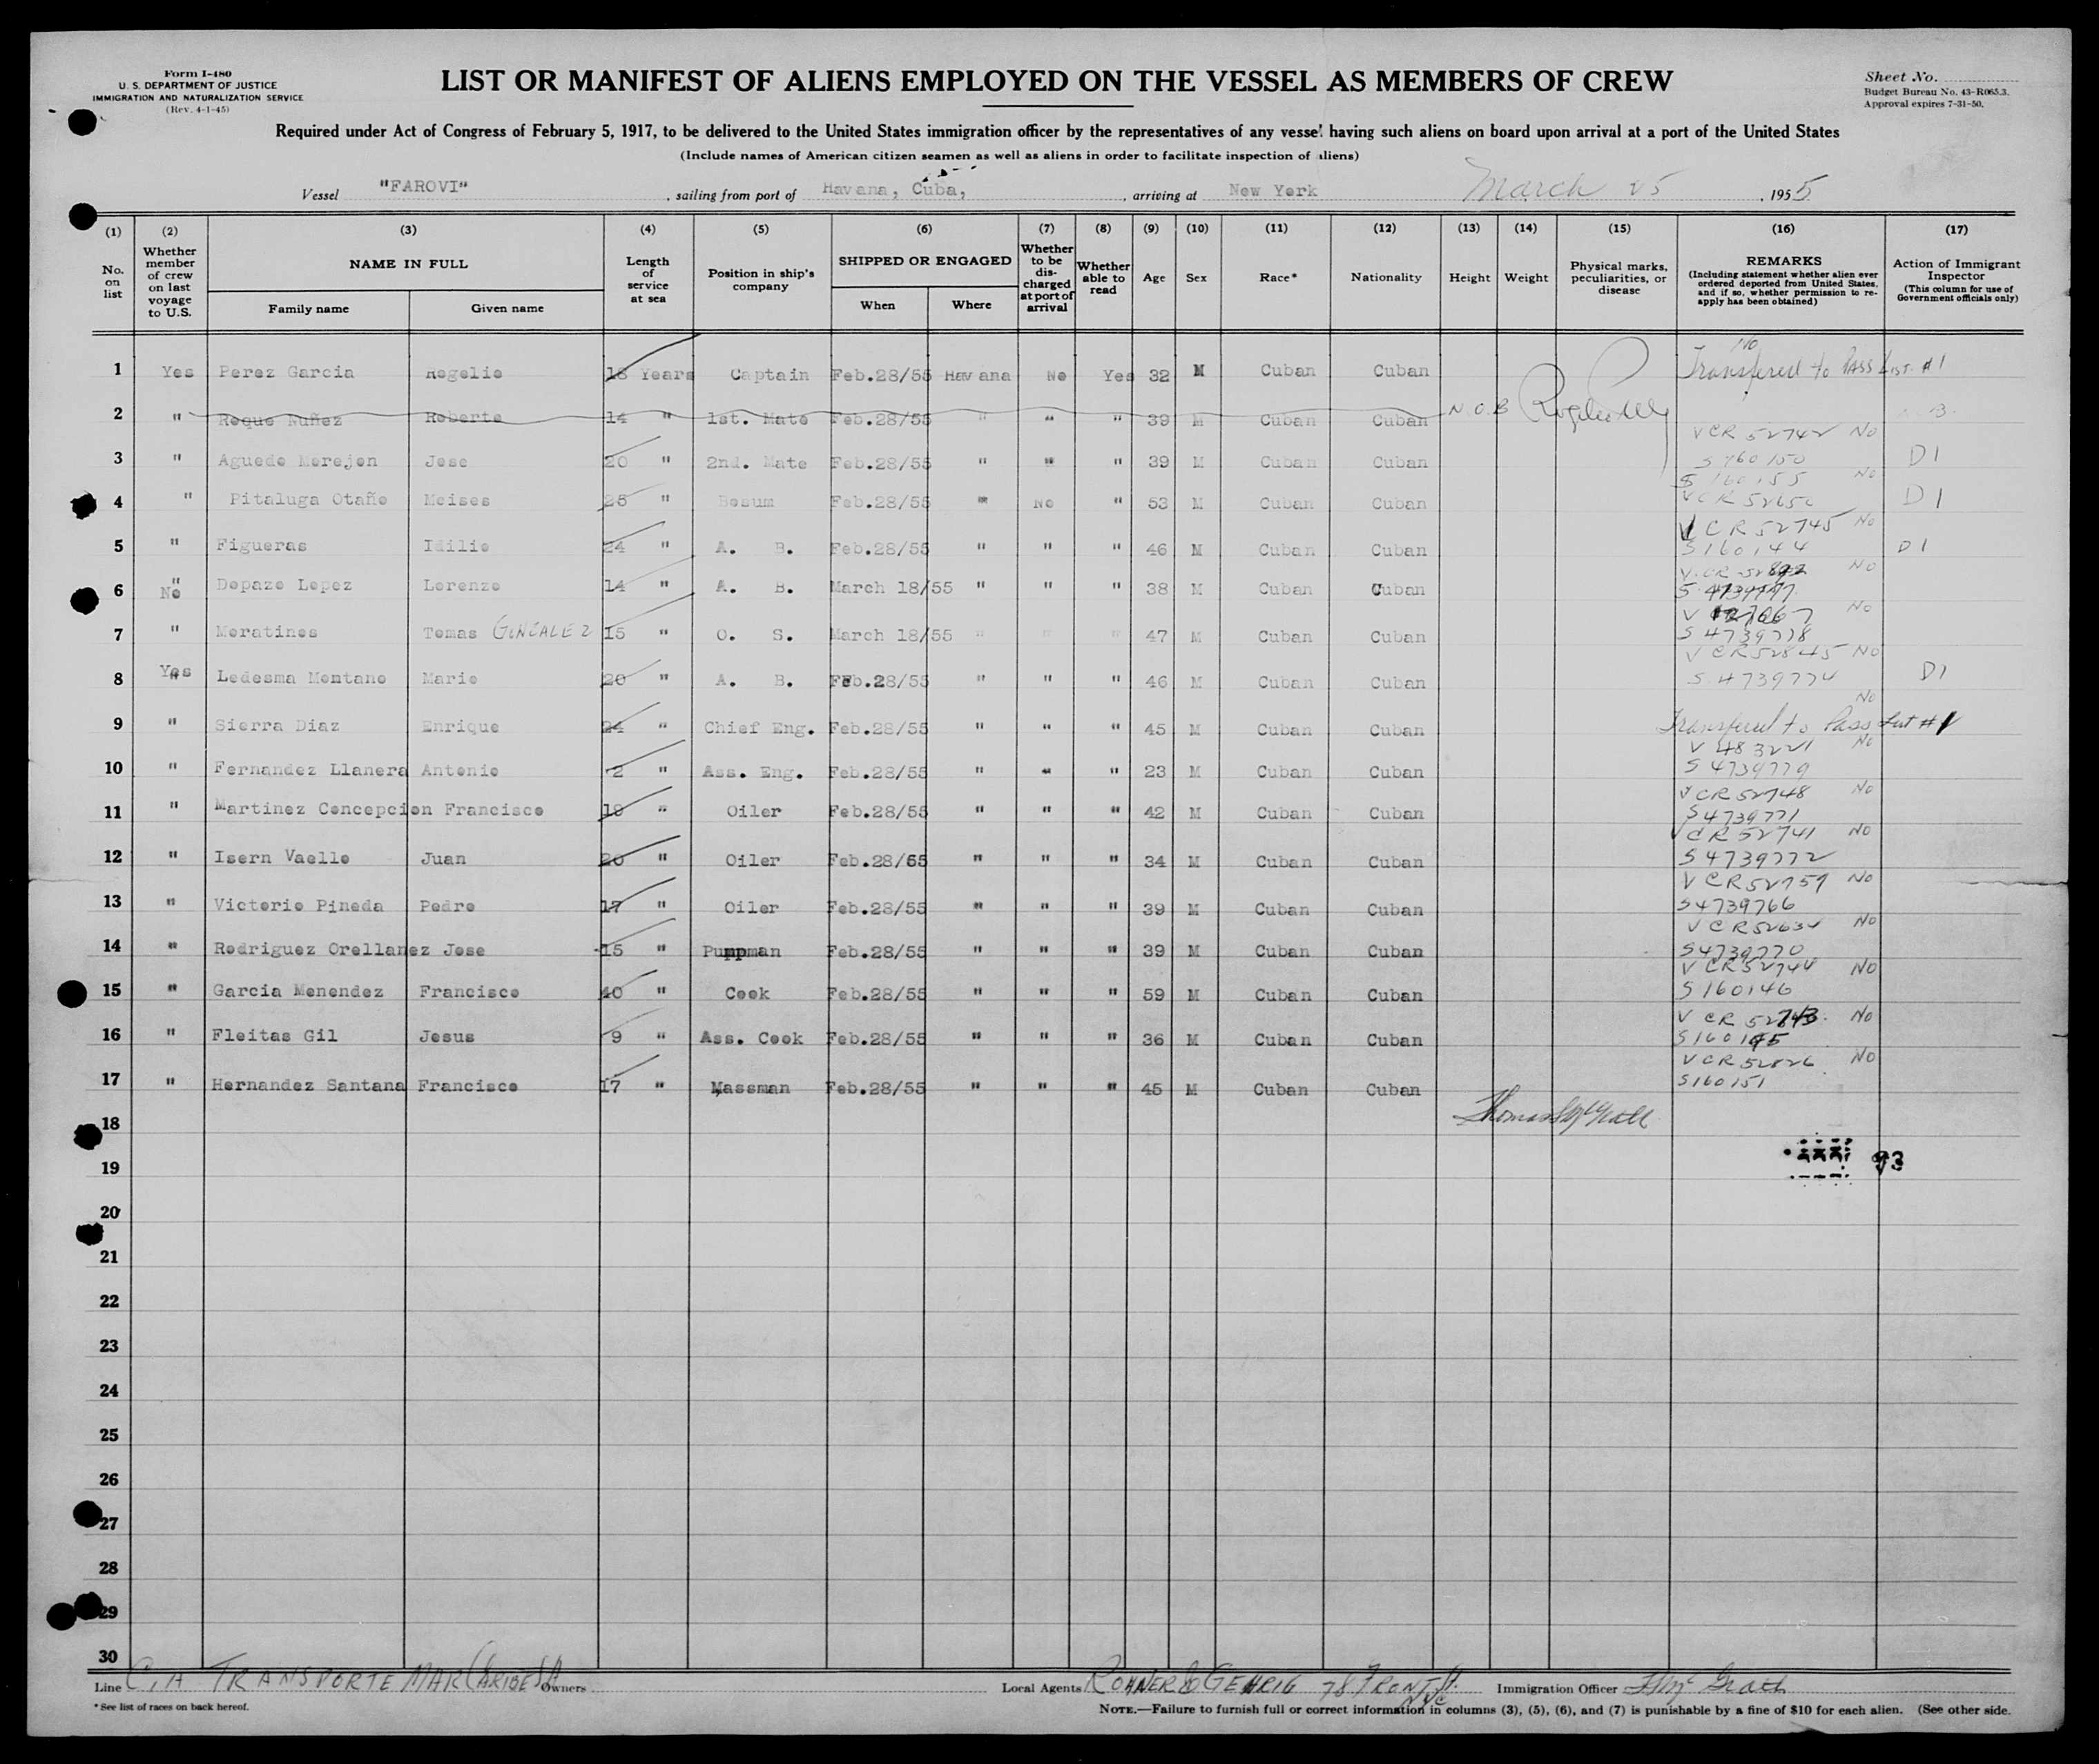 Form I-480
U. S. DEPARTMENT OF JUSTICE
IMMIGRATION AND NATURALIZATION SERVICE
(Rev. 4-1-45)
LIST OR MANIFEST OF ALIENS EMPLOYED ON THE VESSEL AS MEMBERS OF CREW
Sheet No.
Budget Bureau No. 43-R065.3.
Approval expires 7-31-50.
Required under Act of Congress of February 5, 1917, to be delivered to the United States immigration officer by the representatives of any vessel having such aliens on board upon arrival at a port of the United States
(Include names of American citizen seamen as well as aliens in order to facilitate inspection of aliens)
Vessel "FAROVI" , sailing from port of Havana, Cuba, , arriving at New York March 25 , 1955
(1) (2) (3) (4) (5) (6) (7) (8) (9) (10) (11) (12) (13) (14) (15) (16) (17)
No. on list
Whether member of crew on last voyage to U.S.
NAME IN FULL
Family name Given name
Length of service at sea
Position in ship's company
SHIPPED OR ENGAGED
When Where
Whether to be discharged at port of arrival
Whether able to read
Age Sex Race* Nationality Height Weight
Physical marks, peculiarities, or disease
REMARKS
(Including statement whether alien ever ordered deported from United States, and if so, whether permission to reapply has been obtained)
Action of Immigrant Inspector
(This column for use of Government officials only)
1 Yes Perez Garcia Rogelio 18 Years Captain Feb.28/55 Havana No Yes 32 M Cuban Cuban No Transfered to PASS LIST #1
2 " Roque Nuñez Roberto 14 " 1st. Mate Feb.28/55 " " " 39 M Cuban Cuban N.O.B
3 " Aguedo Morejon Jose 20 " 2nd. Mate Feb.28/55 " " " 39 M Cuban Cuban VCR 52742 No S 160150 D1
4 " Pitaluga Otaño Moises 25 " Bosum Feb.28/55 " No " 53 M Cuban Cuban S 160155 No VCR 52650 D1
5 " Figueras Idilio 24 " A. B. Feb.28/55 " " " 46 M Cuban Cuban VCR 52745 No S160144 D1
6 " No Dopazo Lopez Lorenzo 14 " A. B. March 18/55 " " " 38 M Cuban Cuban No
7 " Moratinos Tomas GONZALEZ 15 " O. S. March 18/55 " " " 47 M Cuban Cuban No S 4739778
8 Yes Ledesma Montano Mario 20 " A. B. Feb.28/55 " " " 46 M Cuban Cuban V CR52845 No S. 4739774 D1
9 " Sierra Diaz Enrique 24 " Chief Eng. Feb.28/55 " " " 45 M Cuban Cuban No Transferred to Pass List #1
10 " Fernandez Llanera Antonio 2 " Ass. Eng. Feb.28/55 " " " 23 M Cuban Cuban V 483221 No S 4739779
11 " Martinez Concepcion Francisco 19 " Oiler Feb.28/55 " " " 42 M Cuban Cuban VCR 52748 No S4739771
12 " Isern Vaello Juan 20 " Oiler Feb.28/55 " " " 34 M Cuban Cuban VCR 52741 No S4739772
13 " Victorio Pineda Pedro 17 " Oiler Feb.28/55 " " " 39 M Cuban Cuban V CR52759 No S4739766
14 " Rodriguez Orellanez Jose 15 " Pumpman Feb.28/55 " " " 39 M Cuban Cuban V CR52634 No S4739770
15 " Garcia Menendez Francisco 40 " Cook Feb.28/55 " " " 59 M Cuban Cuban V CR52744 No S160146
16 " Fleitas Gil Jesus 9 " Ass. Cook Feb.28/55 " " " 36 M Cuban Cuban V CR 52743. No S160145
17 " Hernandez Santana Francisco 17 " Massman Feb.28/55 " " " 45 M Cuban Cuban VCR 52826 No S160151
18
19 93
20
21
22
23
24
25
26
27
28
29
30
Line C.IA TRANSPORTE MAR CARIBE SA Owners Local Agents ROHNER & GEHRIG 78 FRONT St. NYC Immigration Officer T McGrath
*See list of races on back hereof.
NOTE.—Failure to furnish full or correct information in columns (3), (5), (6), and (7) is punishable by a fine of $10 for each alien. (See other side.